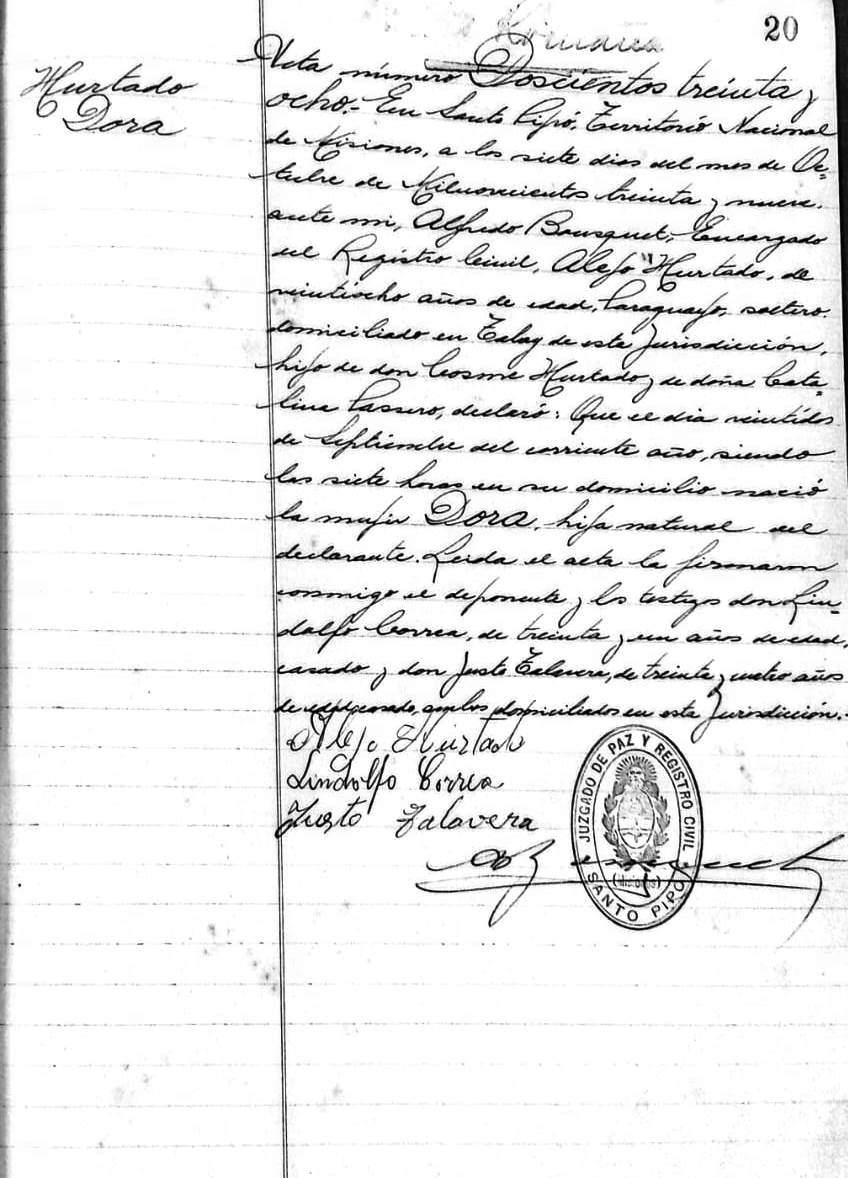 20
Hurtado
Dora
Acta número Doscientos treinta y
ocho.- En Santo Pipó, Territorio Nacional
de Misiones, a los siete dias del mes de Oc=
tubre de Milnovecientos treinta y nueve.
ante mi, Alfredo Bousquet, Encargado
del Registro Civil, Alejo Hurtado, de
veintiocho años de edad, Paraguayo, soltero.
domiciliado en Talay de esta Jurisdicción,
hijo de don Cosme Hurtado y de doña Cata=
lina Passero, declaró: Que el dia veintidos
de Septiembre del corriente año, siendo
las siete horas en su domicilio nació
la mujer Dora, hija natural del
declarante. Leida el acta la firmaron
conmigo el deponente y los testigos don Lin=
dolfo Correa, de treinta y un años de edad,
casado y don Justo Talavera, de treinta y cuatro años
de edad casado, ambos domiciliados en esta Jurisdicción.-
Alejo Hurtado
Lindolfo Correa
Justo Talavera
JUZGADO DE PAZ Y REGISTRO CIVIL
(Misiones)
SANTO PIPÓ